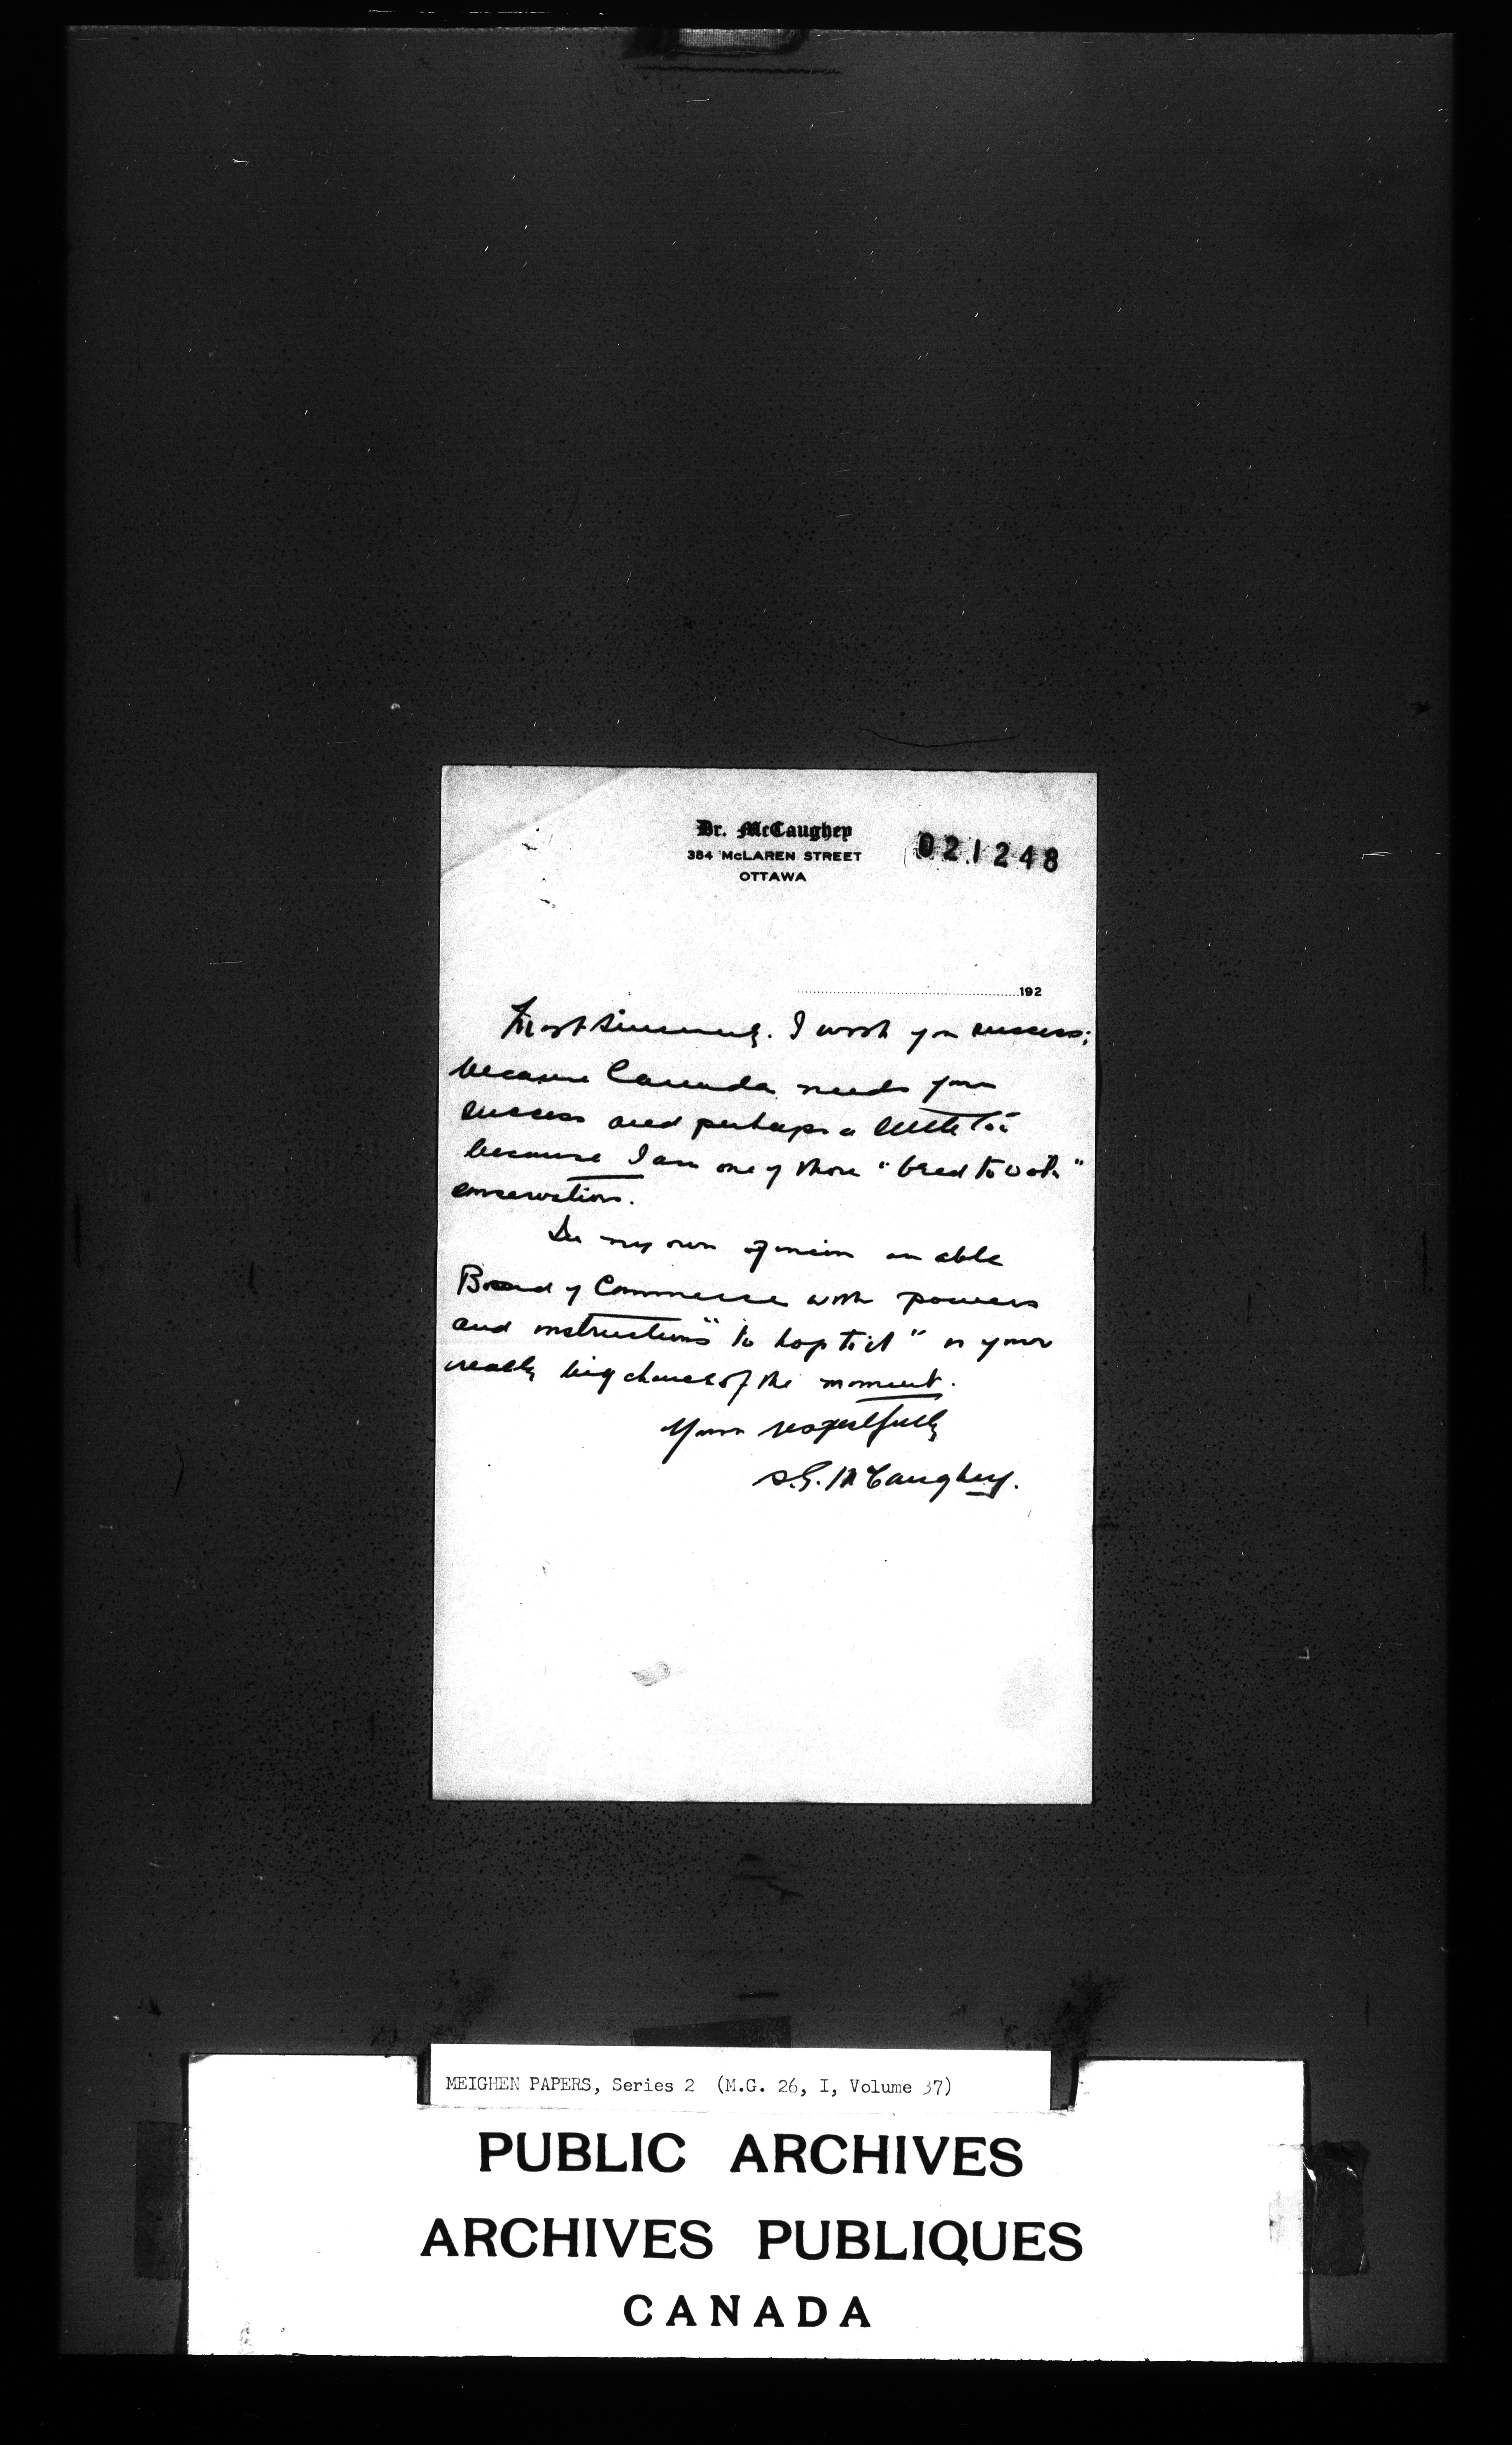 Dr. McCaughey
384 McLAREN STREET
OTTAWA
021248
192
Most sincerely. I wish you success;
because Canada needs your
success and perhaps a little too
because I am one of those "bred to oak"
conservatives.
In my own opinion an able
Board of Commerce with powers
and instructions "to hop to it" is your
really big chance of the moment.
Yours respectfully
S.G. McCaughey.
MEIGHEN PAPERS, Series 2 (M.G. 26, I, Volume 37)
PUBLIC ARCHIVES
ARCHIVES PUBLIQUES
CANADA